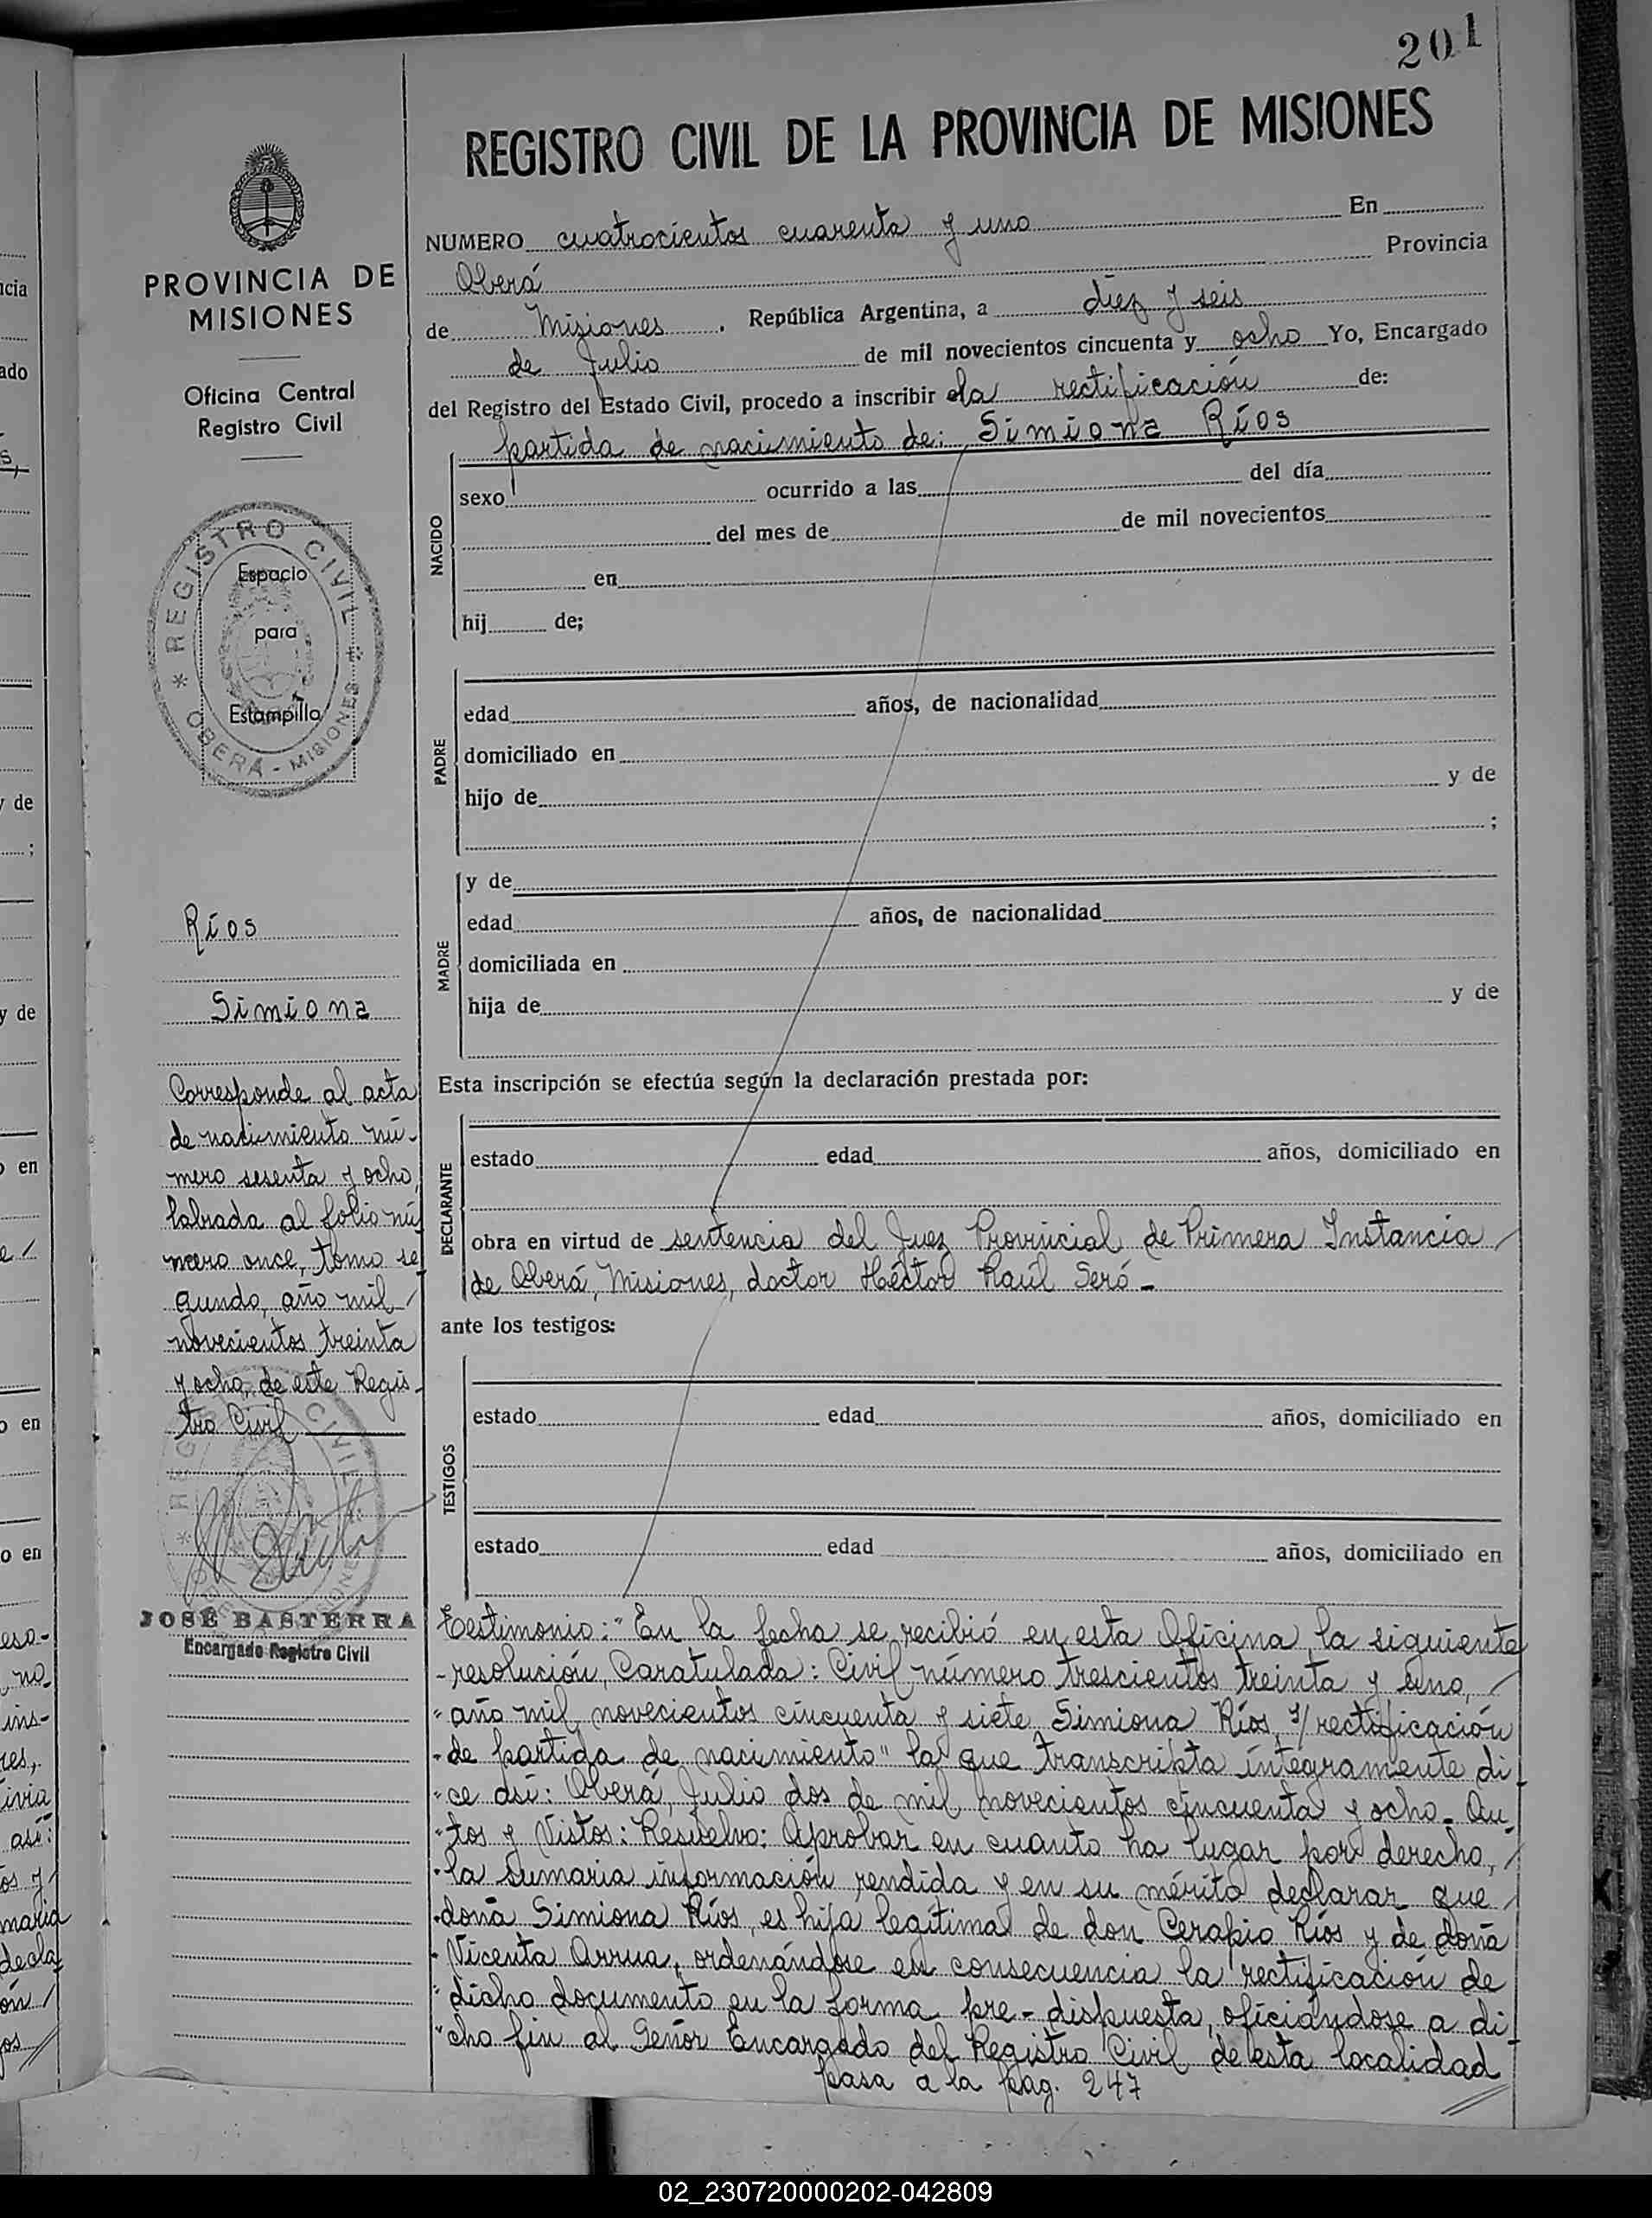 201
REGISTRO CIVIL DE LA PROVINCIA DE MISIONES
NUMERO cuatrocientos cuarenta y uno En
Oberá Provincia
de Misiones. República Argentina, a diez y seis
de Julio de mil novecientos cincuenta y ocho Yo, Encargado
del Registro del Estado Civil, procedo a inscribir la rectificación de:
partida de nacimiento de: Simiona Ríos
NACIDO
sexo ocurrido a las del día
del mes de de mil novecientos
en
hij de;
PADRE
edad años, de nacionalidad
domiciliado en
hijo de y de
;
MADRE
y de
edad años, de nacionalidad
domiciliada en
hija de y de
Esta inscripción se efectúa según la declaración prestada por:
DECLARANTE
estado edad años, domiciliado en
obra en virtud de sentencia del Juez Provincial de Primera Instancia /
de Oberá, Misiones, doctor Héctor Raúl Seró -
ante los testigos:
TESTIGOS
estado edad años, domiciliado en
estado edad años, domiciliado en
Testimonio: "En la fecha se recibió en esta Oficina la siguiente
"resolución, Caratulada: Civil número trescientos treinta y uno, /
"año mil novecientos cincuenta y siete, Simiona Ríos s/ rectificación
"de partida de nacimiento" la que transcripta íntegramente di-
"ce así: Oberá, Julio dos de mil novecientos cincuenta y ocho. Au-
"tos y Vistos: Resuelvo: Aprobar en cuanto ha lugar por derecho, /
"la sumaria información rendida y en su mérito declarar que /
"doña Simiona Ríos, es hija legítima de don Cerapio Ríos y de doña
"Vicenta Arrua, ordenándose en consecuencia la rectificación de
"dicho documento en la forma pre-dispuesta, oficiándose a di-
"cho fin al Señor Encargado del Registro Civil de esta localidad
pasa a la pág. 247
PROVINCIA DE
MISIONES
Oficina Central
Registro Civil
REGISTRO CIVIL
OBERÁ - MISIONES
Espacio
para
Estampilla
Ríos
Simiona
Corresponde al acta
de nacimiento nú-
mero sesenta y ocho,
labrada al folio nú
mero once, tomo se
gundo, año mil /
novecientos treinta
y ocho, de este Regis-
tro Civil
JOSÉ BASTERRA
Encargado Registro Civil
02_230720000202-042809